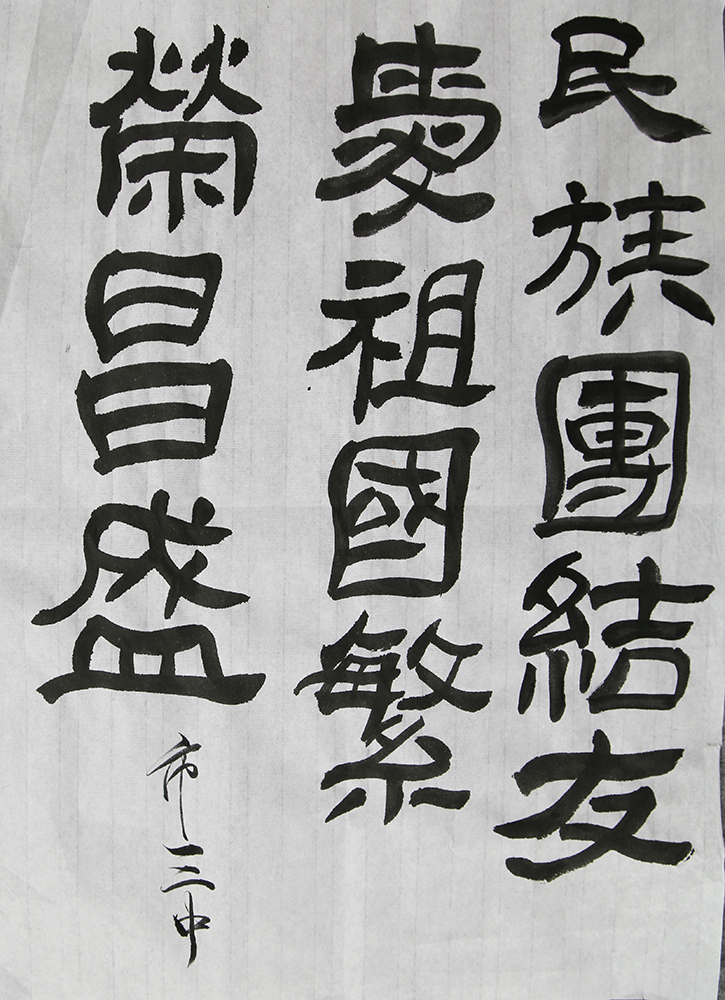 民族團結友
愛祖國繁
榮昌盛
市三中